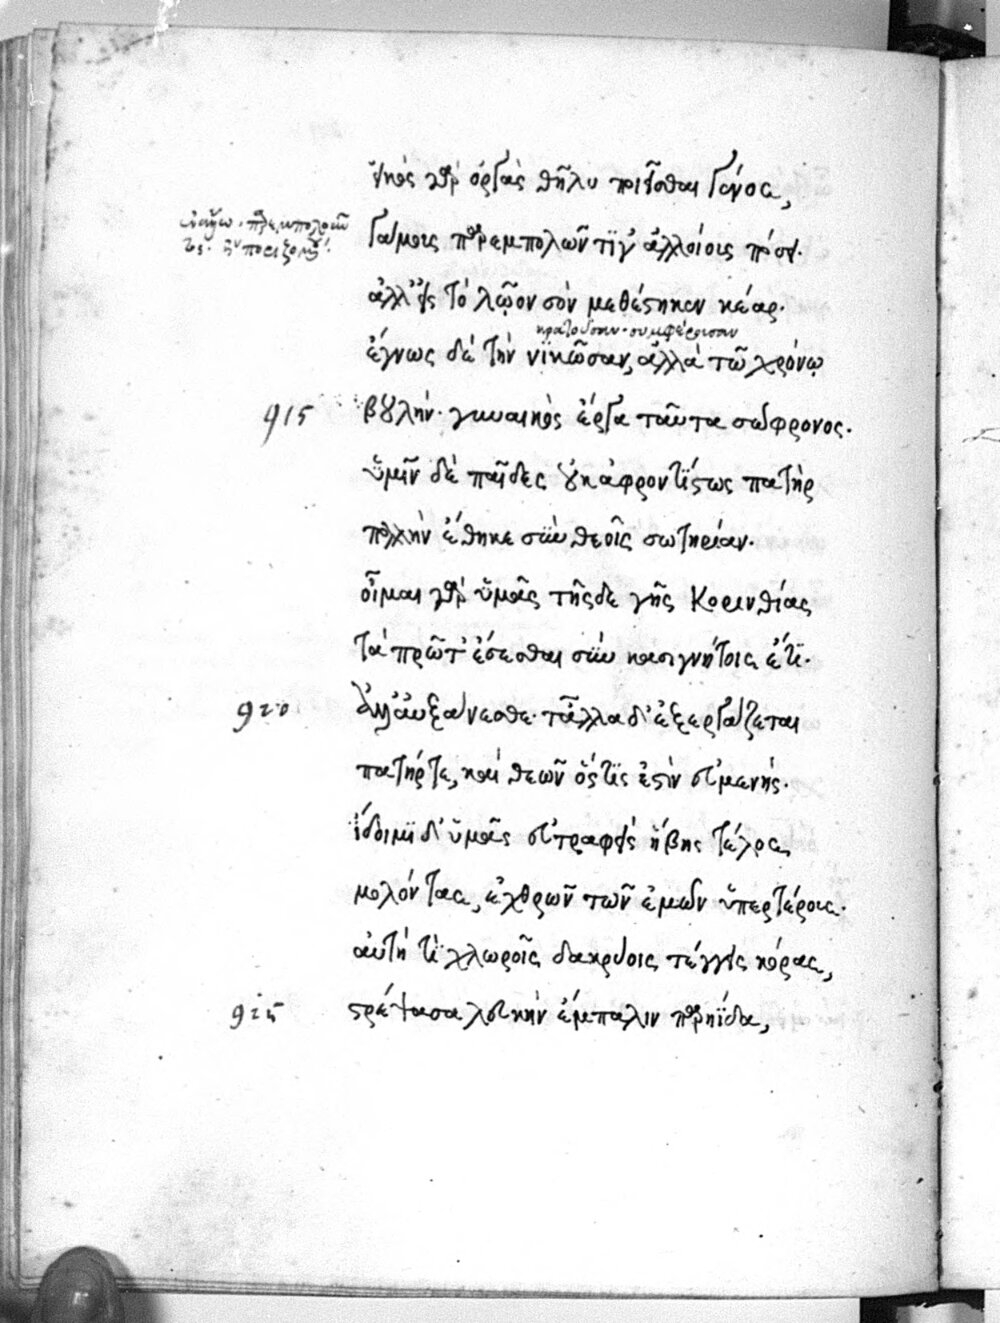 εἰκὸς γὰρ ὀργὰς θῆλυ ποιεῖσθαι γένος,
γάμους παρεμπολῶντί γ' ἀλλοίους πόσει.
ἀλλ' εἰς τὸ λῷον σὸν μεθέστηκεν κέαρ.
κρατοῦσαν· συμφέρουσαν
ἔγνως δὲ τὴν νικῶσαν, ἀλλὰ τῷ χρόνῳ
915 βουλήν· γυναικὸς ἔργα ταῦτα σώφρονος.
ὑμῖν δὲ παῖδες οὐκ ἀφροντίστως πατὴρ
πολλὴν ἔθηκε σὺν θεοῖς σωτηρίαν.
οἶμαι γὰρ ὑμᾶς τῆσδε γῆς Κορινθίας
τὰ πρῶτ' ἔσεσθαι σὺν κασιγνήτοις ἔτι.
920 ἀλλ' αὐξάνεσθε· τἆλλα δ' ἐξεργάζεται
πατήρ τε, καὶ θεῶν ὅστις ἐστὶν εὐμενής.
ἴδοιμι δ' ὑμᾶς εὐτραφεῖς ἥβης τέλος
μολόντας, ἐχθρῶν τῶν ἐμῶν ὑπερτέρους.
αὕτη τί χλωροῖς δακρύοις τέγγεις κόρας,
925 στρέψασα λευκὴν ἔμπαλιν παρηίδα,